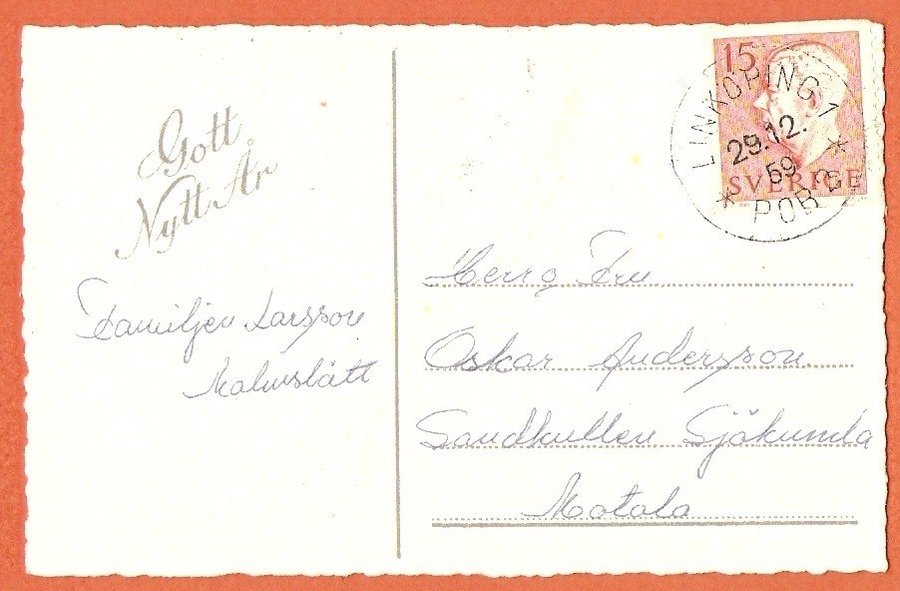 Gott
Nytt År
Familjen Larsson
Malmslätt
15
SVERIGE
LINKÖPING 1
29.12.
59
POB G
Herr o Fru
Oskar Andersson
Sandkullen Sjökumla
Motala